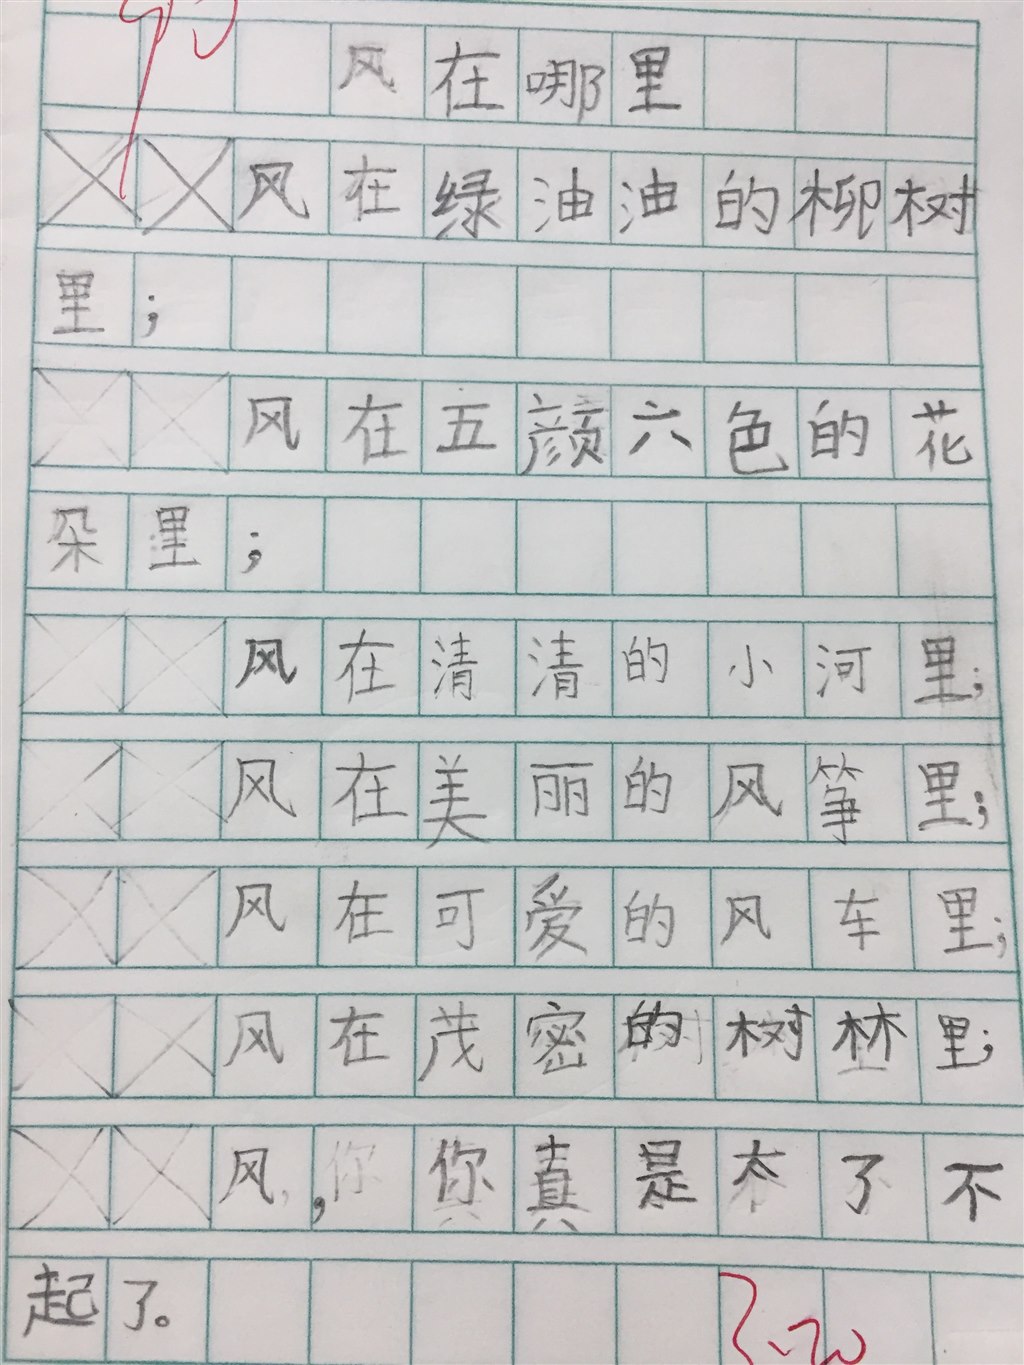 风在哪里
风在绿油油的柳树
里；
风在五颜六色的花
朵里；
风在清清的小河里；
风在美丽的风筝里；
风在可爱的风车里；
风在茂密的树林里；
风，你真是太了不
起了。